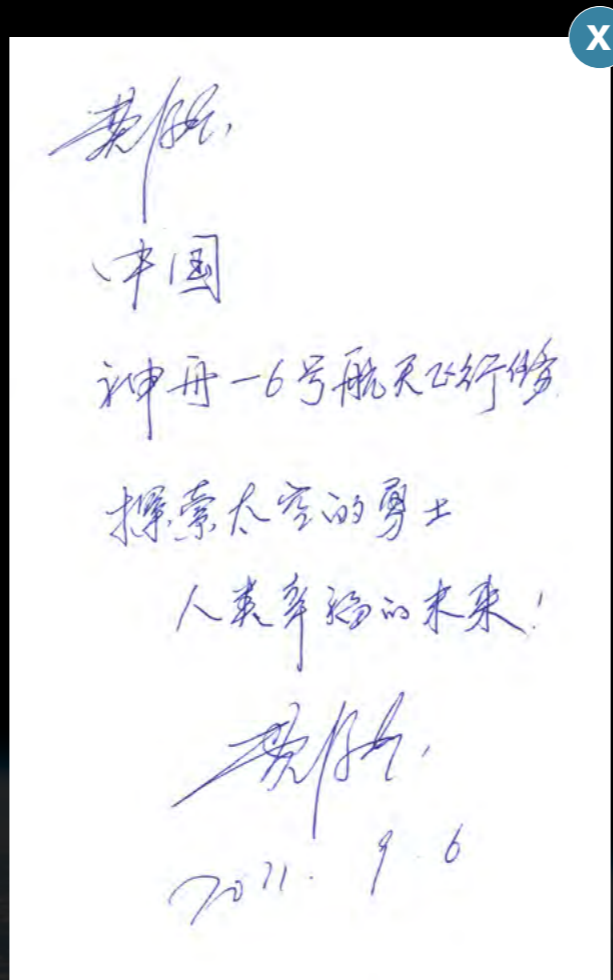 X
费俊龙
中国
神舟一6号航天飞行任务
探索太空的勇士
人类幸福的未来!
费俊龙
2011. 9. 6